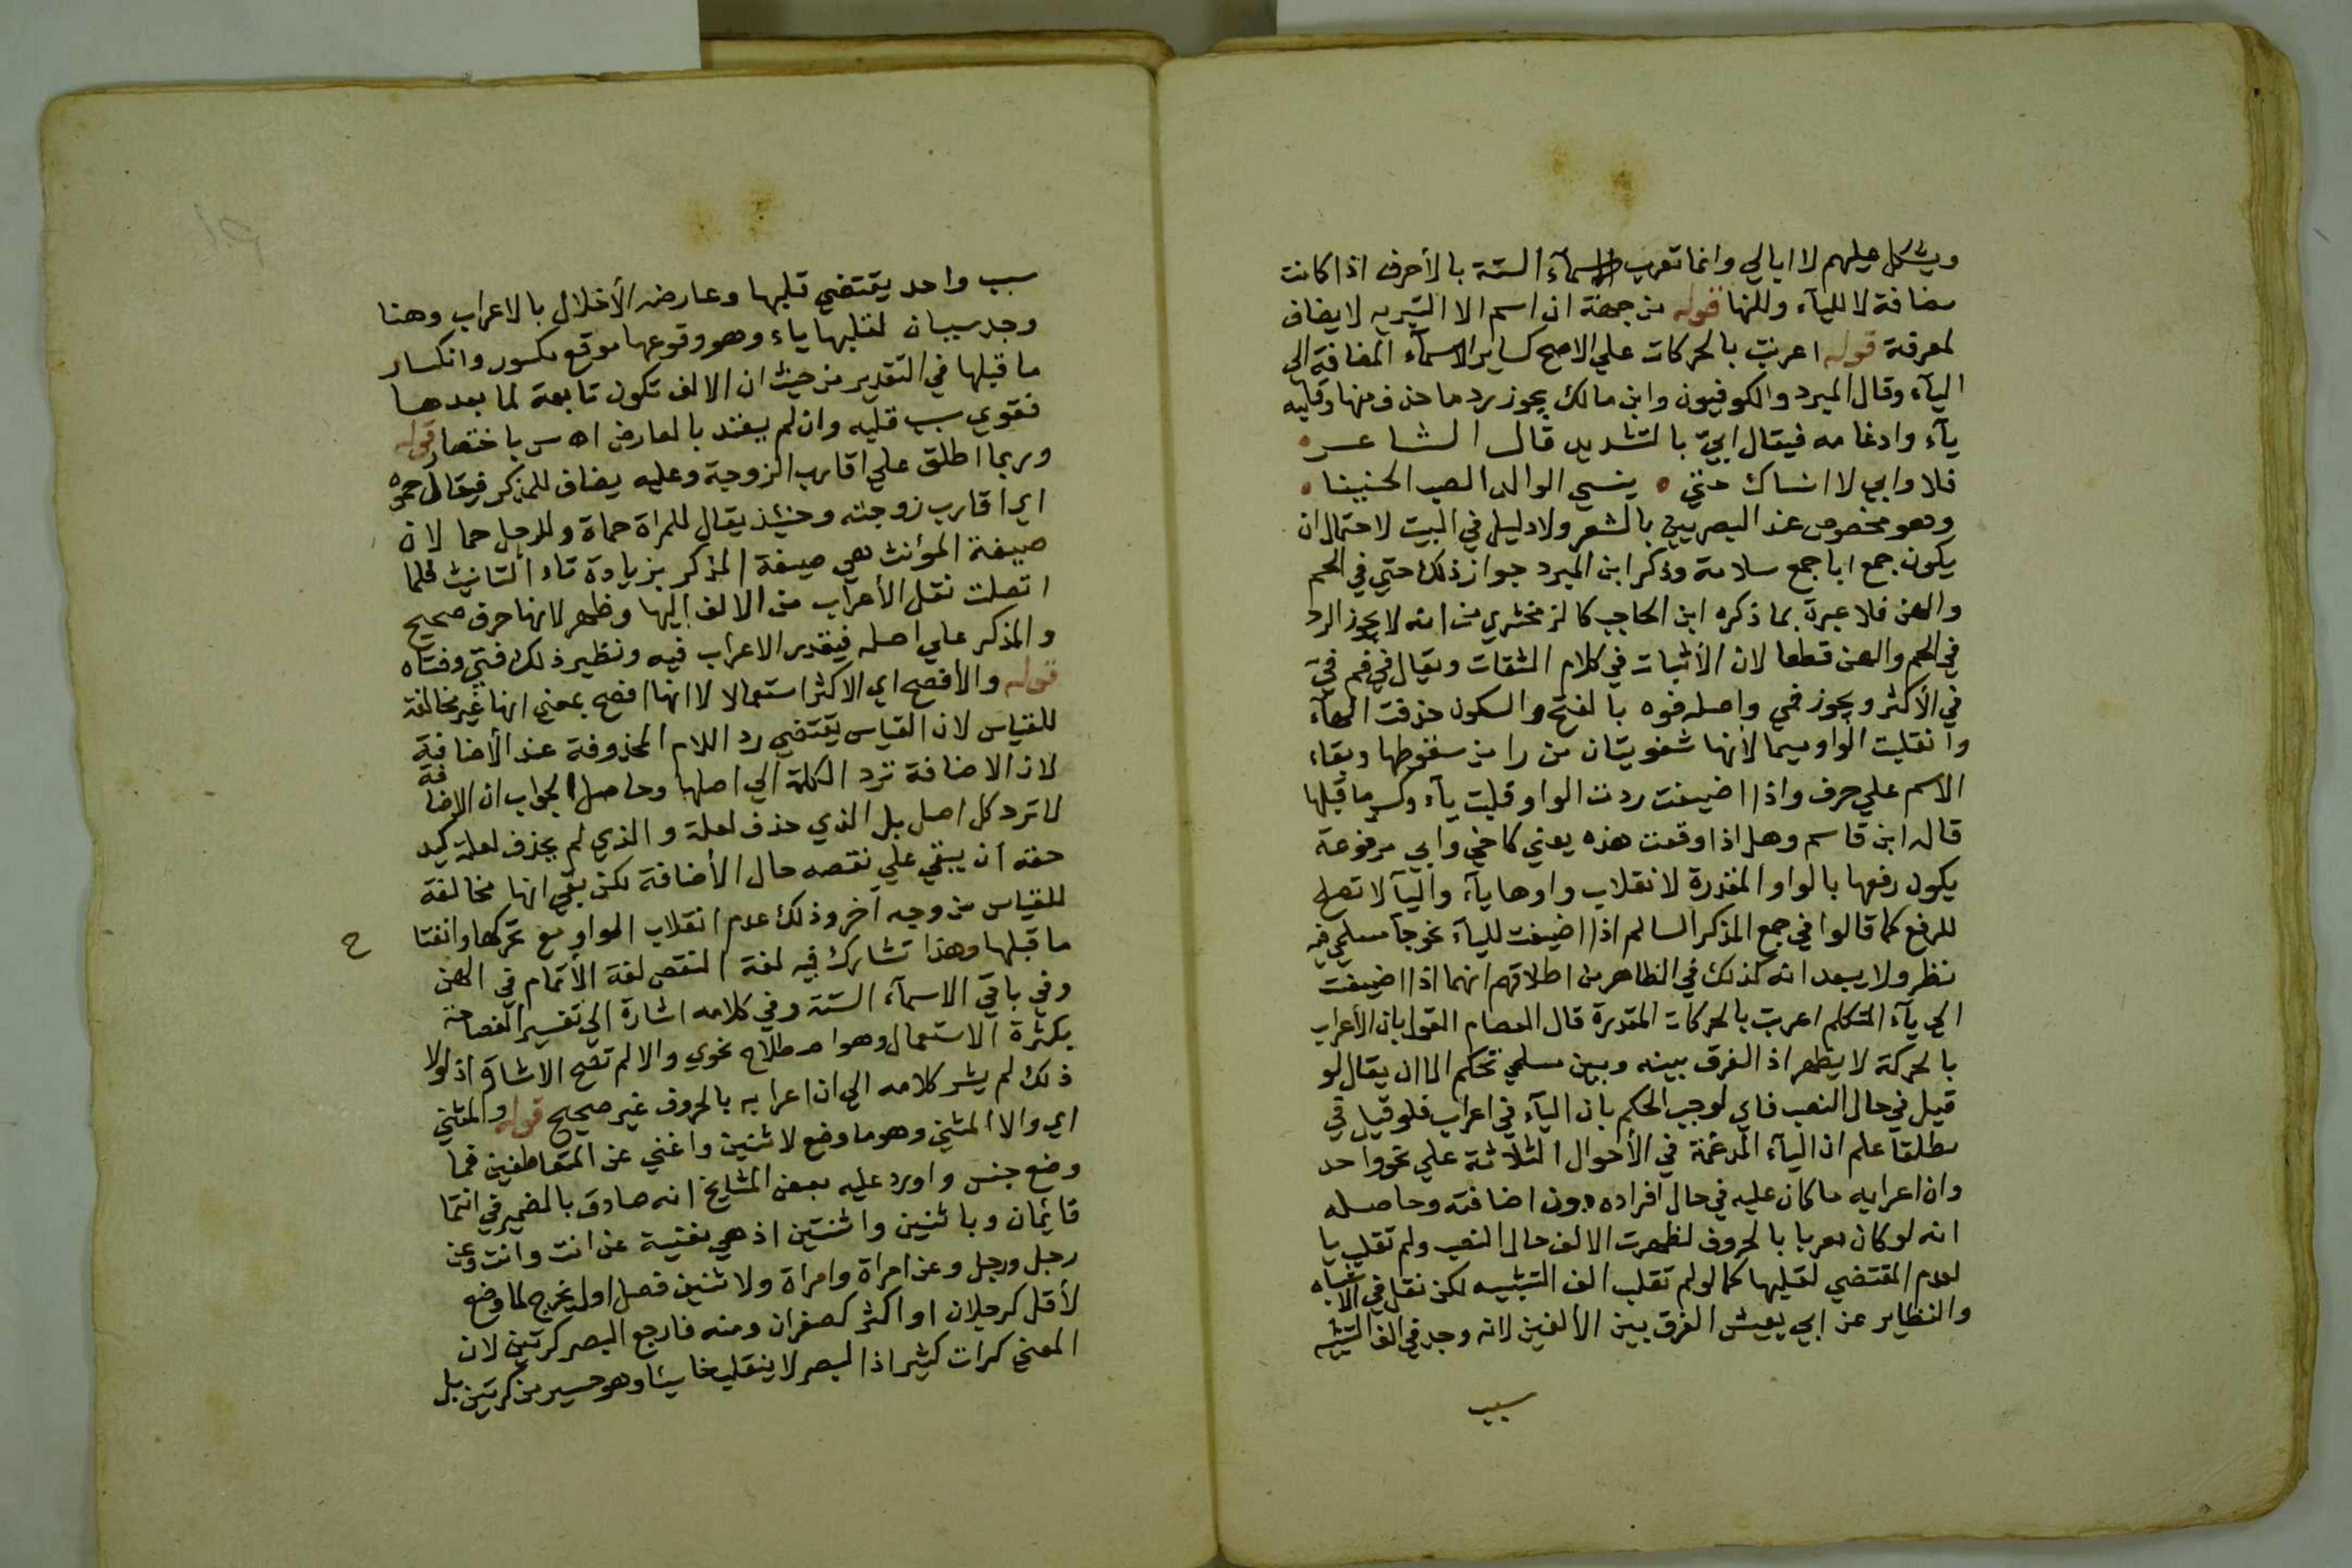 ويشكل عليهم لا ابالي وانما تعرب الاسمآء الستة بالأحرف اذا كانت
مضافة لا لليآء وللنها قوله من جهة ان اسم الا التبرية لا يضاف
لمعرفة قوله اعربت بالحركات علي الاصح كساير الاسمآء المضافة الي
اليآء وقال المبرد والكوفيون وابن مالك يجوز رد ما حذف منها وقلبه
يآء وادغامه فيقال ابيّ بالتشديد قال الشاعر
فلا وابي لا انساك حتي ينسي الواله الصب الحنينا
وهو مخصوص عند البصريين بالشعر ولا دليل في البيت لاحتمال ان
يكون جمع ابا جمع سلامة وذكر ابن المبرد جواز ذلك حتي في الحم
والهن فلا عبرة بما ذكره ابن الحاجب كالزمخشري من انه لا يجوز الرد
في الحم والهن قطعا لان الأثبات في كلام الثقات ويقال في فم فيّ
في الأكثر ويجوز فمي واصله فوه بالفتح والسكون حذفت الهآء
وانقلبت الواو ميما لأنها شفويتان من را من سقوطها وبقاء
الاسم علي حرف واذا اضيفت ردت الواو قلبت يآء وكسر ما قبلها
قال ابن قاسم وهل اذا وقعت هذه يعني كاخي وابي مرفوعة
يكون رفعها بالواو المقدرة لانقلاب واوها يآء واليآ لا تصلح
للرفع كما قالوا في جمع المذكر السالم اذا اضيفت لليآء نحو جآ مسلمي فيه
نظر ولا يبعد انه كذلك في الظاهر من اطلاقهم انهما اذا اضيفت
الي يآء المتكلم اعربت بالحركات المقدرة قال العصام القول بان الأعراب
بالحركة لا يظهر اذ الفرق بينه وبين مسلمي تحكم الا ان يقال لو
قيل في حال النصب فاي لوجب الحكم بان اليآء في اعراب فلو قيل في
مطلقا علم ان اليآء المدغمة في الأحوال الثلاثة علي نحو واحد
وان اعرابه ما كان عليه في حال افراده دون اضافته وحاصله
انه لو كان معربا بالحروف لظهرت الالف حال النصب ولم تقلب يا
لعدم المقتضي لقلبها كما لو لم تقلب الف التثنيه لكن نقل في الاشباه
والنظاير عن ابي يعيش الفرق بين الألفين لانه وجد في الف التثنيه
سبب
سبب واحد يقتضي قلبها وعارضه الأخلال بالاعراب وهنا
وجد سببان لقلبها ياء وهو وقوعها موقع مكسور وانكسار
ما قبلها في التقدير من حيث ان الالف تكون تابعة لما بعدها
فقوي سبب قلبه وان لم يعتد بالعارض اه س باختصار قوله
وربما اطلق علي اقارب الزوجة وعليه يضاف للمذكر فيقال حموه
اي اقارب زوجته وحينئذ يقال للمراة حماة وللرجل حما لان
صيغة المؤنث هي صيغة المذكر بزيادة تاء التانيث فلما
اتصلت نقل الأعراب من الالف اليها وظهر لانها حرف صحيح
والمذكر علي اصله فيقدر الاعراب فيه ونظير ذلك فتي وفتاه
قوله والأفصح اي الاكثر استعمالا لا انها افصح بمعني انها غير مخالفة
للقياس لان القياس يقتضي رد اللام المحذوفة عند الأضافة
لان الاضافة ترد الكلمة الي اصلها وحاصل الجواب ان الاضافة
لا ترد كل اصل بل الذي حذف لعلة والذي لم يحذف لعلة كيد
حقه ان يبقي علي نقصه حال الأضافة لكن بقي انها مخالفة
للقياس من وجه آخر وذلك عدم انقلاب الواو مع تحركها وانفتاح
ما قبلها وهذا تشارك فيه لغة النقص لغة الأتمام في الهن
وفي باقي الاسمآء الستة وفي كلامه اشارة الي تفسير الفصاحة
بكثرة الاستعمال وهو اصطلاح نحوي والا لم تصح الاشارة اذ لولا
ذلك لم يشر كلامه الي ان اعرابه بالحروف غير صحيح قوله والمثني
اي والا المثني وهو ما وضع لاثنين واغني عن المتعاطفين فما
وضع جنس واورد عليه بعض المشايخ انه صادق بالضمير في انتما
قايمان وباثنين واثنتين اذ هي مغنية عن انت وانت وعن
رجل ورجل وعن امراة وامراة ولاثنين فصل اول يخرج لما وضع
لأقل كرجلان او اكثر كصفران ومنه فارجع البصر كرتين لان
المعني كرات كثير اذ البصر لا ينقلب خاسئا وهو حسير من كرتين بل